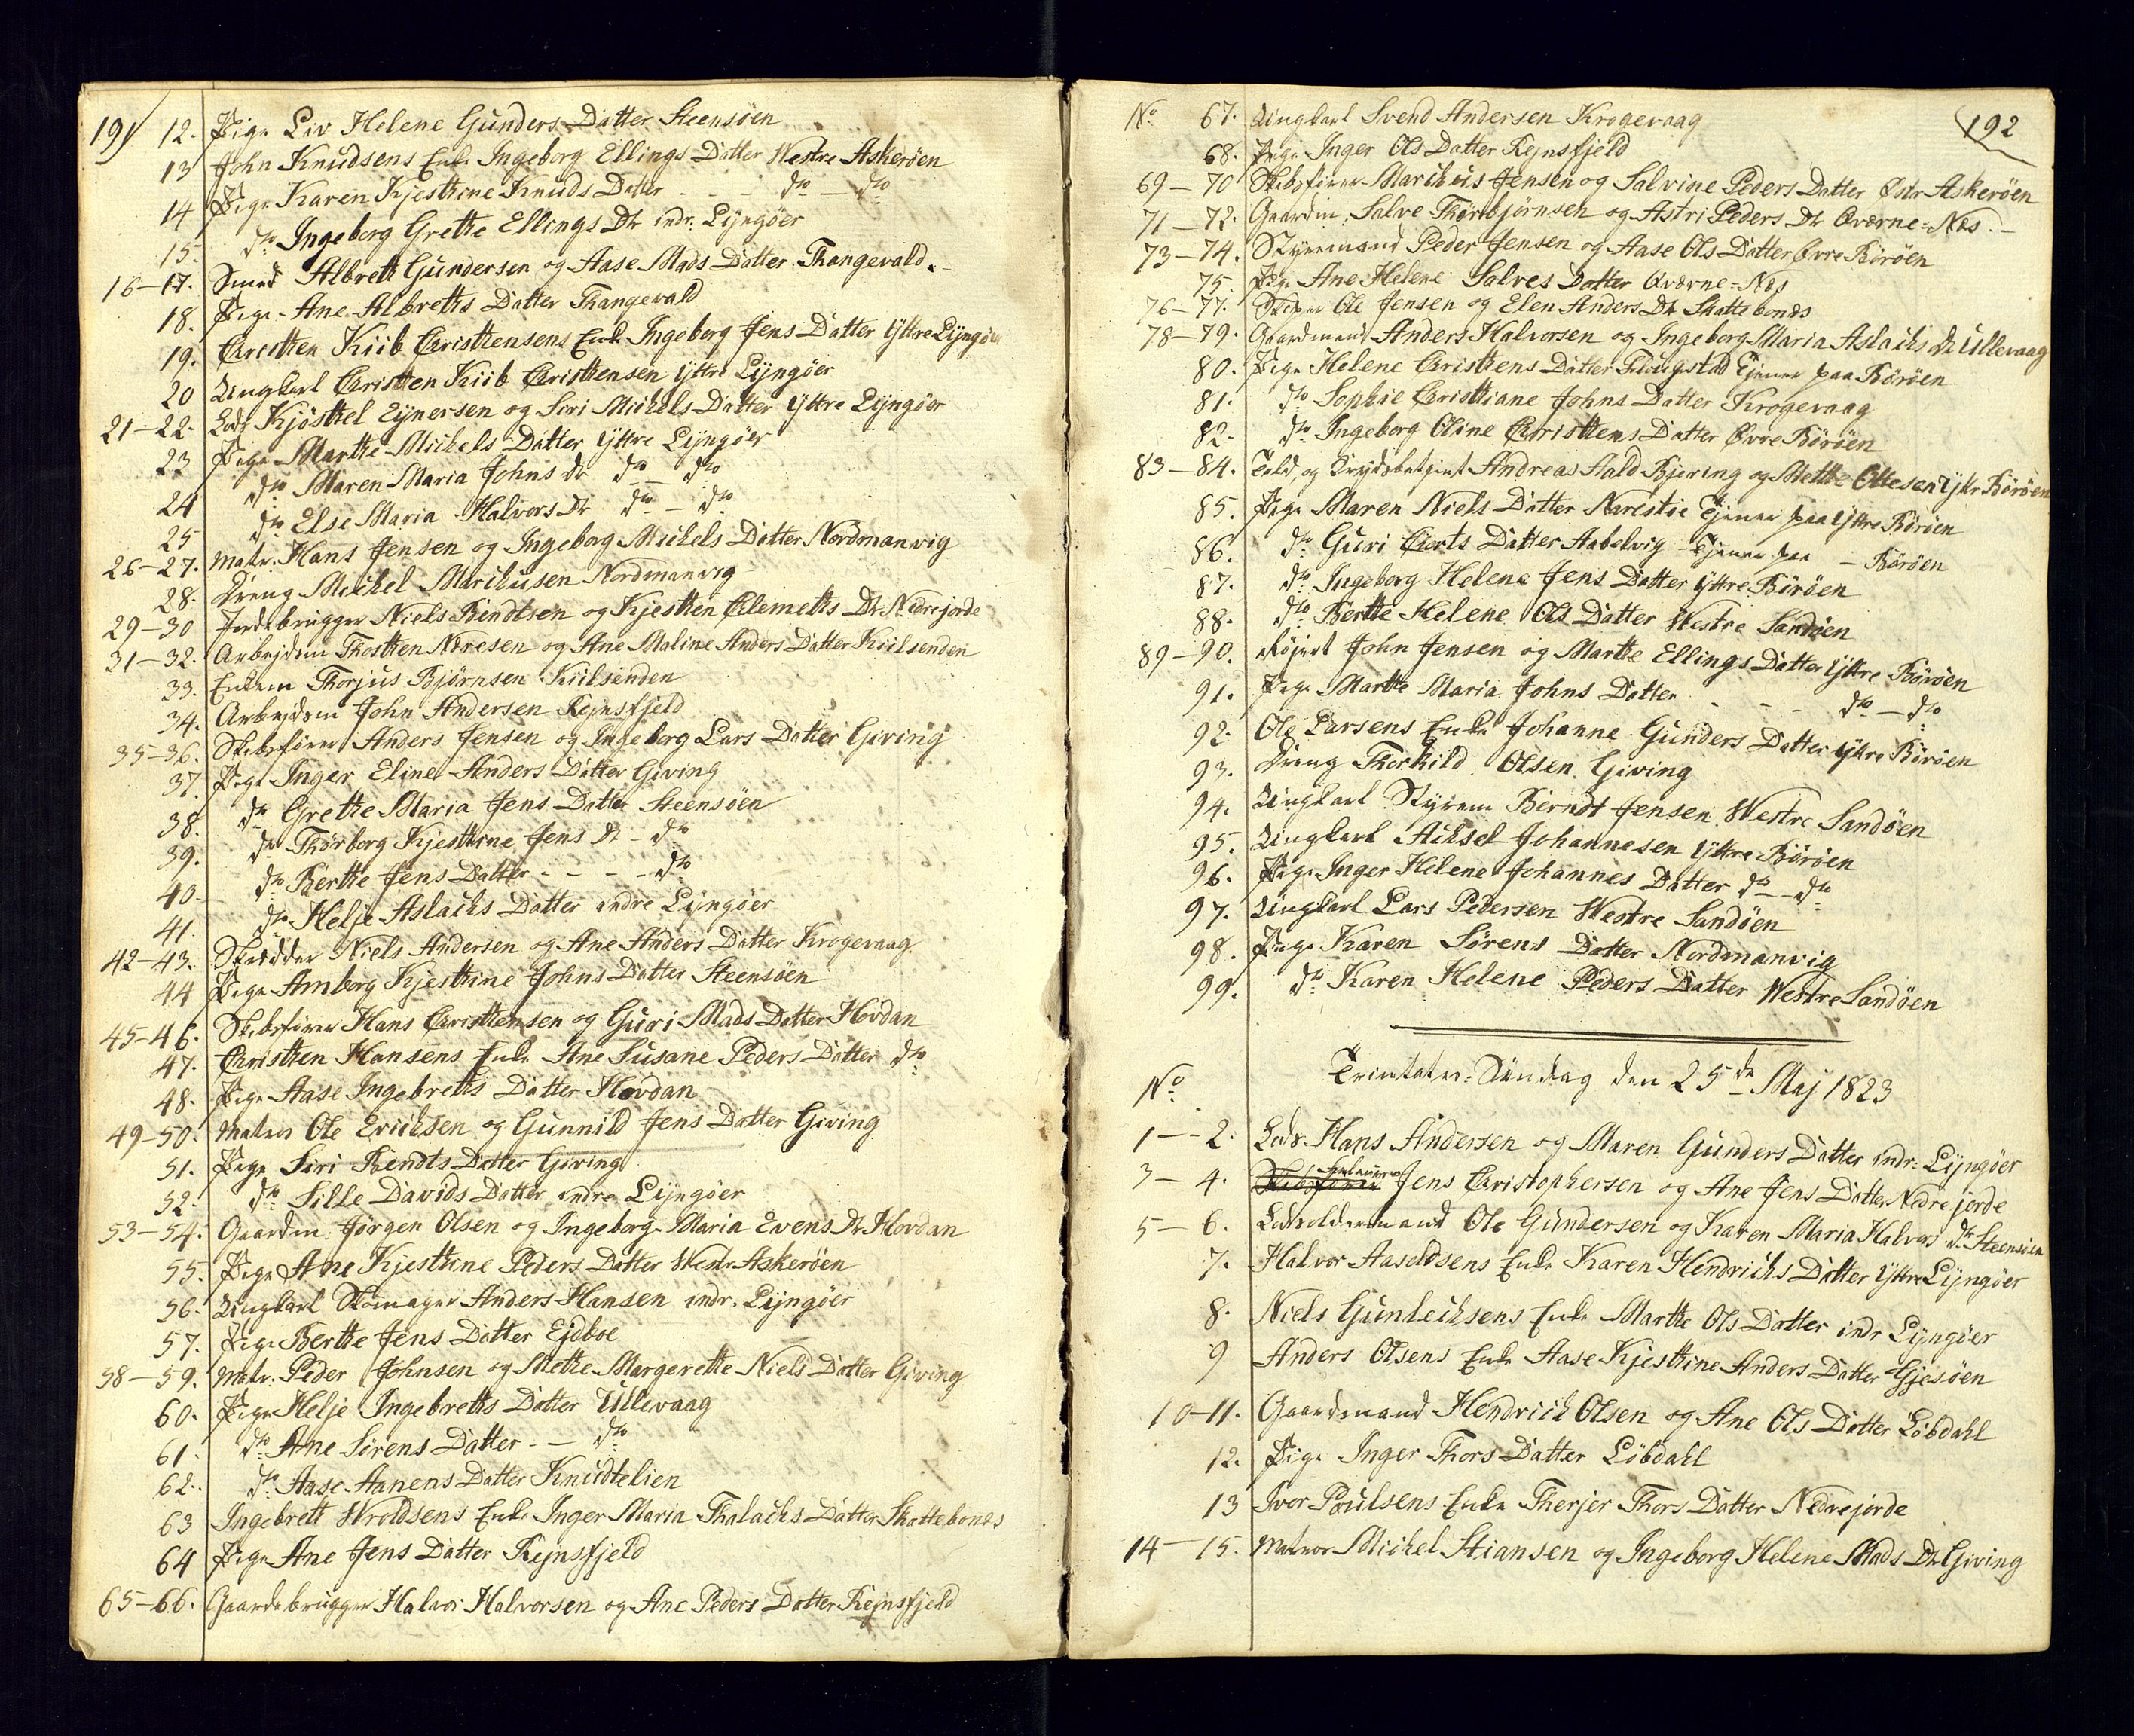 191
12. Pige Liv Helene Gunders Datter Steensöen
13 John Knudsens Enke Ingeborg Ellings Datter Westre Askeröen
14 Pige Karen Kjesthine Knuds Datter - - - do — do
15. do Ingeborg Grethe Ellings Dtr indr. Lyngöer
16—17. Smed Albreth Gundersen og Aase Mads Datter Thangevald.
18. Pige Ane Albreths Datter Thangevald
19. Christhen Kiib Christhensens Enke Ingeborg Jens Datter Yttre Lyngöer
20 Ungkarl Christhen Kiib Christhensen Yttre Lyngöer
21—22. Lods Kjösthel Eynersen og Siri Michels Datter Yttre Lyngöer
23 Pige Marthe Michels Datter Yttre Lyngöer
24 do Maren Maria Johns Dtr do — do
25 do Else Maria Halvors Dtr do — do
26—27. Matr. Hans Jensen og Ingeborg Michels Datter Nordmanvig
28. Dreng Michel Marihusen Nordmanvig
29—30 Jordebrugger Niels Bendtsen og Kjesthen Clemeths Dtr Nedrejorde
31—32. Arbejdsm Thosthen Næresen og Ane Maline Anders Datter Kiilsenden
33. Enkem Thorjus Björnsen Kiilsenden
34. Arbejdsm John Andersen Rejnsfjeld
35—36. Skibsförer Anders Jensen og Ingeborg Lars Datter Giving
37. Pige Inger Eline Anders Datter Giving
38. do Grethe Maria Jens Datter Steensöen
39. do Thorborg Kjesthine Jens Dr - do
40. do Berthe Jens Datter - - - - do
41. do Helje Aslachs Datter indre Lyngöer
42—43. Skrædder Niels Andersen og Ane Anders Datter Krogevaag
44 Pige Amborg Kjesthine Johns Datter Steensöen
45—46. Skibsförer Hans Christhensen og Guri Mads Datter Hovdan
47. Christhen Hansens Enke Ane Susane Peders Datter do
48. Pige Aase Ingebreths Datter Hovdan
49—50. Matros Ole Erichsen og Gunnild Jens Datter Giving
51. Pige Siri Bendts Datter Giving
52. do Sille Davids Datter indre Lyngöer
53—54. Gaardm. Jörgen Olsen og Ingeborg Maria Evens Dr Hovdan
55. Pige Ane Kjesthine Peders Datter Westr. Askeröen
56. Ungkarl Skomager Anders Hansen indr. Lyngöer
57. Pige Berthe Jens Datter Ejdboe
58—59. Matr. Peder Johnsen og Methe Margerethe Niels Datter Giving
60. Pige Helje Ingebreths Datter Ullevaag
61. do Ane Sörens Datter - — do
62. do Aase Aanens Datter Knudtelien
63 Ingebrett Wroldsens Enke Inger Maria Thalachs Datter Skattebonds
64 Pige Ane Jens Datter Rejnsfjeld
65—66. Gaardebrugger Halvor Halvorsen og Ane Peders Datter Rejnsfjeld
192
No 67. Ungkarl Svend Andersen Krogevaag
68. Pige Inger Ols Datter Rejnsfjeld
69—70 Skibsförer Marihus Jensen og Salvine Peders Datter Östr Askeröen
71—72. Gaardm. Salve Thorbjörnsen og Astri Peders Dr Qværne=Næs.
73—74. Styrmand Peder Jensen og Aase Ols Datter Övre Böröen
75. Pige Ane Helene Salves Datter Qværne=Næs
76—77. Skiper Ole Jensen og Elen Anders Dr Skattebonds
78—79. Gaardmand Anders Halvorsen og Ingeborg Maria Aslachs Dr Ullevaag
80. Pige Helene Christhens Datter Tjener paa Böröen
81. do Sophie Christhiane Johns Datter Krogevaag
82. do Ingeborg Oline Christhens Datter Övre Böröen
83—84. Told og Andreas Aald Bjering og Methe Ottesen Yttr Böröen
85. Pige Maren Niels Datter Narestöe Tjener paa Yttre Böröen
86. do Guri Datter Aabelvig Tjener paa — Böröen
87. do Ingeborg Helene Jens Datter Yttre Böröen
88. do Berthe Helene Ols Datter Westre Sandöen
89—90. John Jensen og Marthe Ellings Datter Yttre Böröen
91. Pige Marthe Maria Johns Datter - - - do — do
92. Ole Larsens Enke Johanne Gunders Datter Yttre Böröen
93. Dreng Thorkild Olsen Giving
94. Ungkarl Styrm Berndt Jensen Westre Sandöen
95. Ungkarl Achsel Johannesen Yttre Böröen
96. Pige Inger Helene Johannes Datter do — do
97. Ungkarl Lars Pedersen Westre Sandöen
98. Pige Karen Sörens Datter Nordmanvig
99. do Karen Helene Peders Datter Westre Sandöen
No Trinitatis=Söndag den 25de Maj 1823
1—2. Lods. Hans Andersen og Maren Gunders Datter indr: Lyngöer
3—4. Jens Christophersen og Ane Jens Datter Nedrejorde
5—6. Lodsoldermand Ole Gundersen og Karen Maria Halvors Dr Steensöen
7. Halvor Aaseldsens Enke Karen Hendrichs Datter Yttre Lyngöer
8. Niels Gunleichsens Enke Marthe Ols Datter indr Lyngöer
9 Anders Olsens Enke Aase Kjesthine Anders Datter Gjesöen
10—11. Gaardmand Hendrich Olsen og Ane Ols Datter Löbdahl
12. Pige Inger Thors Datter Löbdahl
13 Iver Poulsens Enke Therjer Thors Datter Nedrejorde
14—15. Matros Michel Stiansen og Ingeborg Helene Mads Dr Giving